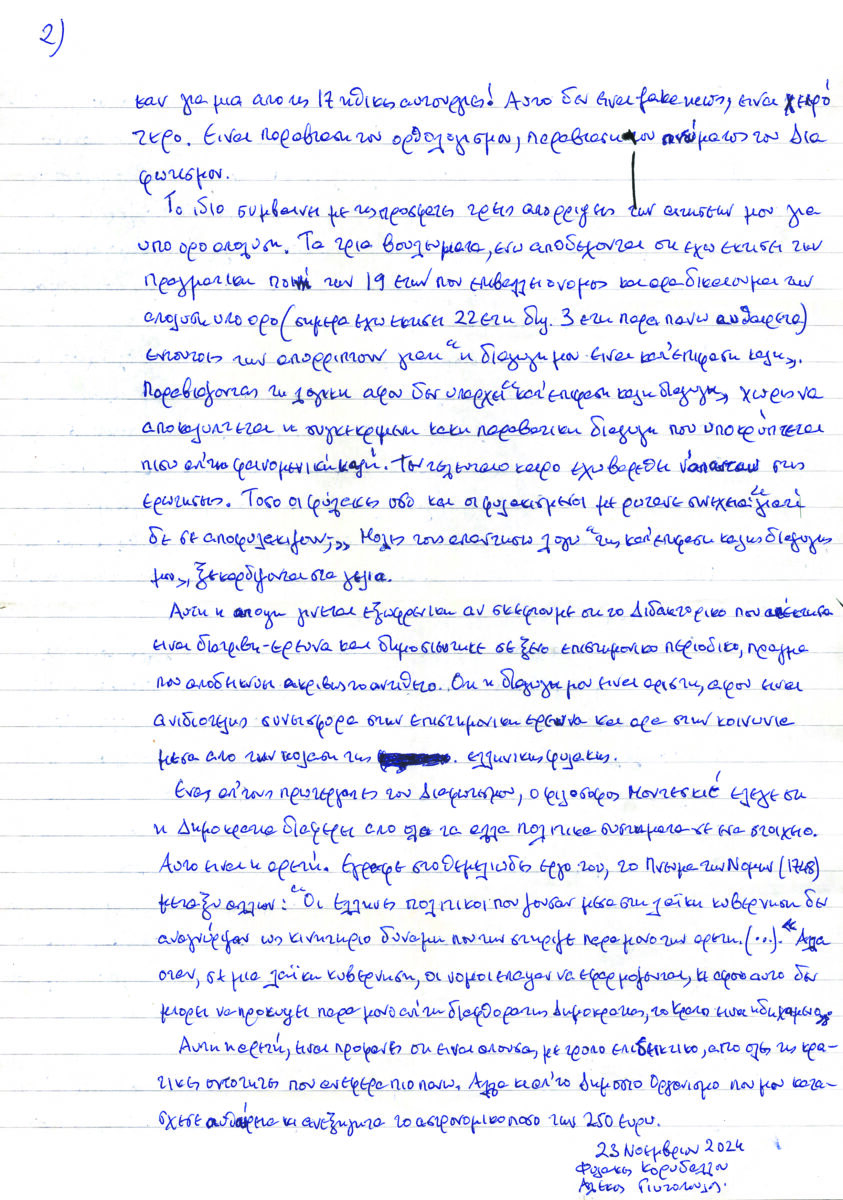 2)
καν για μια απο τις 17 ηθικες αυτουργιες! Αυτο δεν ειναι fake news, ειναι χειρό
τερο. Ειναι παραβιαση του ορθολογισμου, παραβιαση του πνεύματος του Δια
φωτισμου.
Το ιδιο συμβαινει με τις προσφατες τρεις απορριψεις των αιτησεων μου για
υπο ορο απολυση. Τα τρια βουλευματα, ενω αποδεχονται οτι εχω εκτισει των
πραγματικη ποινή των 19 ετων που επιβαλλει ο νομος και αρα δικαιουμαι την
απολυση υπο ορο (σημερα εχω εκτισει 22 ετη δηλ. 3 ετη παραπανω αυθαιρετα)
εντουτοις την απορριπτουν γιατι "η διαγωγη μου ειναι κατ' επιφαση καλη".
Παραβιαζοντας τη λογικη αφου δεν υπαρχει "κατ' επιφαση καλη διαγωγη", χωρις να
αποκαλυπτεται η συγκεκριμενη κακη παραβατικη διαγωγη που υποκρύπτεται
πισω απ' τη φαινομενικη καλή. Τον τελευταιο καιρο εχω βαρεθει ν' απανταω στις
ερωτησεις. Τοσο οι φύλακες οσο και οι φυλακισμενοι με ρωτανε συνεχεια "γιατί
δε σε αποφυλακιζουν;" Μολις τους απαντησω λογω "της κατ' επιφαση καλης διαγωγης
μου", ξεκαρδιζονται στα γελια.
Αυτη η αποψη γινεται εξωφρενικη αν σκεφτουμε οτι το Διδακτορικο που απέκτησα
ειναι διατριβη-ερευνα και δημοσιευτηκε σε ξενο επιστημονικο περιοδικο, πραγμα
που αποδεικνυει ακριβως το αντιθετο. Οτι η διαγωγη μου ειναι αριστη, αφου ειναι
ανιδιοτελης συνεισφορα στην επιστημονικη ερευνα και αρα στην κοινωνια
μεσα απο την κολαση της ελληνικης φυλακης.
Ενας απ' τους πρωτεργατες του Διαφωτισμου, ο φιλοσοφος Μοντεσκιέ ελεγε οτι
η Δημοκρατια διαφερει απο ολα τα αλλα πολιτικα συστηματα σε ενα στοιχειο.
Αυτο ειναι η αρετή. Εγραφε στο θεμελιωδες εργο του, το Πνευμα των Νομων (1748)
μεταξυ αλλων: "Οι Ελληνες πολιτικοι που ζουσαν μεσα στη λαϊκη κυβερνηση δεν
αναγνώριζαν ως κινητηριο δυναμη που την στηριζε παρα μονο την αρετη. (...). "Αλλα
οταν, σε μια λαϊκη κυβερνηση, οι νομοι επαψαν να εφαρμοζονται, κι αφου αυτο δεν
μπορει να προκυψει παρα μονο απ' τη διαφθορα της Δημοκρατιας, το κρατος ειναι ηδη χαμενο".
Αυτη η αρετή, ειναι προφανες οτι ειναι απουσα, με τροπο επιδεικτικο, απο ολες τις κρα-
τικες οντοτητες που ανεφερα πιο πανω. Αλλα κι απ' το Δημοσιο Οργανισμο που μου κατα-
σχεσε αυθαίρετα κι ανεξηγητα το αστρονομικο ποσο των 250 ευρω.
23 Νοεμβριου 2024
Φυλακες Κορυδαλλου
Αλεκος Γιωτοπουλος.